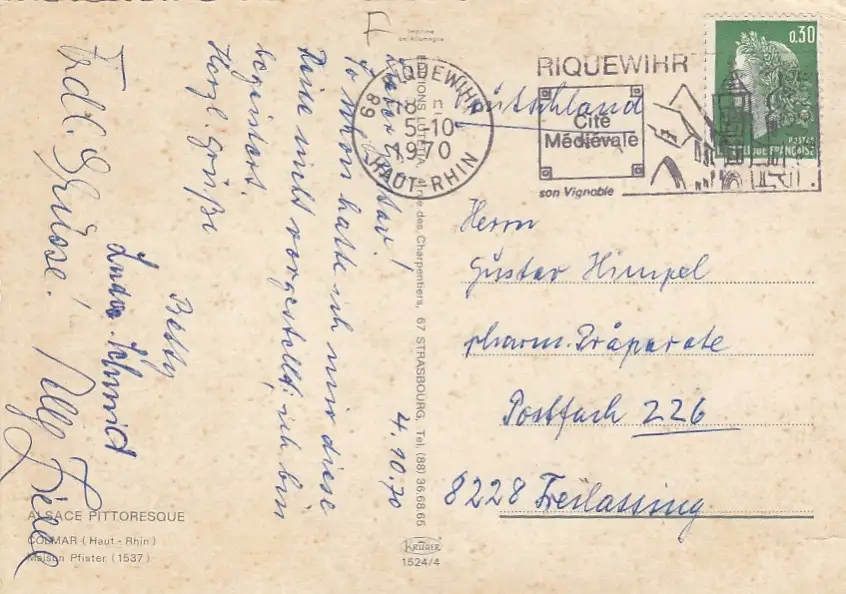 F
Imprimé
en Allemagne
4.10.70
Lieber Gustav!
So schön hatte ich mir diese
Reise nicht vorgestellt, ich bin
begeistert.
Herzl. Grüße
Betty
Schmid
Frdl. Grüsse!
EDITIONS rue des Charpentiers, 67 STRASBOURG, Tel. (88) 36.68.65
KRÜGER
1524/4
RIQUEWIHR
68
18 H
5-10
1970
HAUT-RHIN
RIQUEWIHR
Cité
Médiévale
son Vignoble
0,30
POSTES
REPUBLIQUE FRANÇAISE
Deutschland
Herrn
Gustav Himpel
pharm. Präparate
Postfach 226
8228 Freilassing
ALSACE PITTORESQUE
COLMAR (Haut-Rhin)
Maison Pfister (1537)